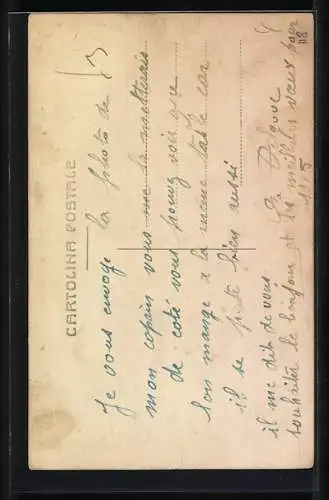 CARTOLINA POSTALE
Je vous envoye la photo de
mon copain vous me la metterais
de coté vous pouvez voir que
l'on mange a la meme table car
il se porte bien aussi
il me dit de vous
souhaiter le bonjour et les meilleurs vœux pour
1918